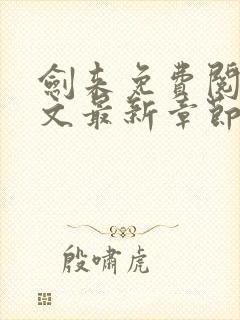 劍来免費閱
文最新章節
殷嘯虎